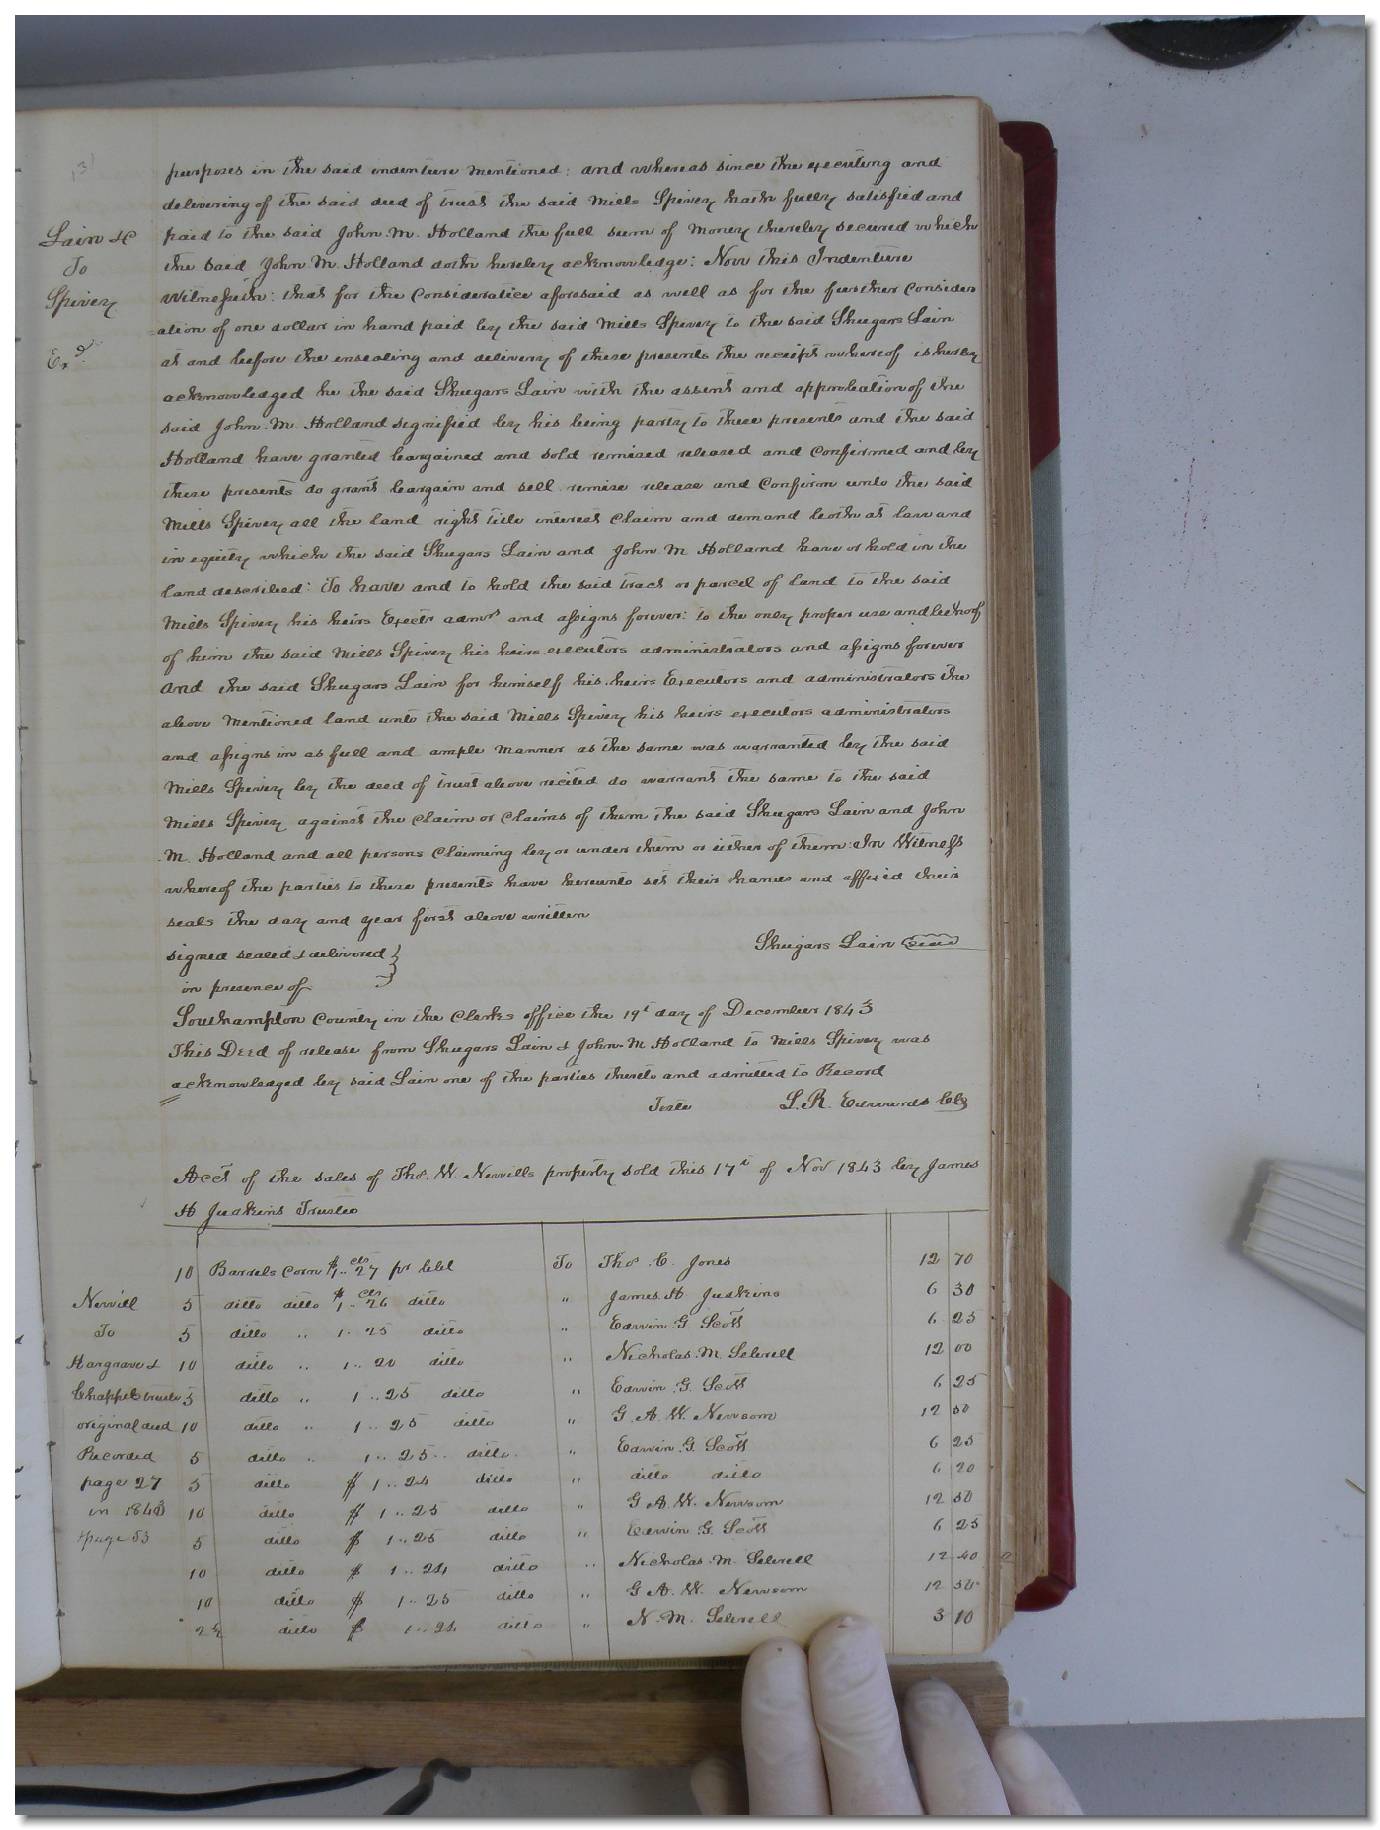 purposes in the said indenture mentioned: and whereas since the executing and
delivering of the said deed of trust the said Mills Spivey hath fully satisfied and
Lain &c
paid to the said John. M. Holland the full sum of Money thereby secured which
To
the said John. M. Holland doth hereby acknowledge: Now this Indenture
Spivey
Witnesseth: that for the Consideration aforesaid as well as for the further Consider
=ation of one dollar in hand paid by the said Mills Spivey to the said Shugars Lain
Exd.
at and before the ensealing and delivery of these presents the receipt whereof is hereby
acknowledged he the said Shugars Lain with the assent and approbation of the
said John. M. Holland signified by his being party to these presents and the said
Holland have granted bargained and sold remised released and Confirmed and by
these presents do grant bargain and sell remise release and Confirm unto the said
Mills Spivey all the land right title interest Claim and demand both at law and
in equity which the said Shugars Lain and John M Holland have or hold in the
land described: To have and to hold the said tract or parcel of land to the said
Mills Spivey his heirs Exects admrs and assigns forever: to the only proper use and behoof
of him the said Mills Spivey his heirs executors administrators and assigns forever
and the said Shugars Lain for himself his heirs Executors and administrators the
above Mentioned land unto the said Mills Spivey his heirs executors administrators
and assigns in as full and ample Manner as the same was warranted by the said
Mills Spivey by the deed of trust above recited do warrant the same to the said
Mills Spivey against the Claim or Claims of them the said Shugars Lain and John
M. Holland and all persons Claiming by or under them or either of them: In Witness
whereof the parties to these presents have hereunto set their hands and affixed their
seals the day and year first above written
Shugars Lain seal
signed sealed & delivered
in presence of
Southampton County in the Clerks office the 19t day of December 1843
This Deed of release from Shugars Lain & John M Holland to Mills Spivey was
acknowledged by said Lain one of the parties thereto and admitted to Record
Teste L. R. Edwards Clk
Acct of the sales of Thos. W. Nevills property sold this 17t of Nov 1843 by James
H Judkins Trustee
10 Barrels Corn $1.. cts 27 pr bbl To Thos. C. Jones 12 70
Nevill 5 ditto ditto $1.. cts 26 ditto " James. H. Judkins 6 30
To 5 ditto " 1.. 25 ditto " Edwin. G Scott 6 25
Hargrave & 10 ditto " 1.. 20 ditto " Nicholas. M. Sebrell 12 00
Chappel trusts 5 ditto " 1.. 25 ditto " Edwin. G. Scott 6 25
original deed 10 ditto " 1.. 25 ditto " G. A. W. Newsom 12 50
Recorded 5 ditto " 1.. 25.. ditto " Edwin. G. Scott 6 25
page 27 5 ditto $ 1.. 24 ditto " ditto ditto 6 20
in 1843 10 ditto $ 1.. 25 ditto " G A. W. Newsom 12 50
&page 53 5 ditto $ 1.. 25 ditto " Edwin G. Scott 6 25
10 ditto $ 1.. 24 ditto " Nicholas. M. Sebrell 12 40
10 ditto $ 1.. 25 ditto " G A. W. Newsom 12 50
2½ ditto $ 1.. 24 ditto " N. M. Sebrell 3 10